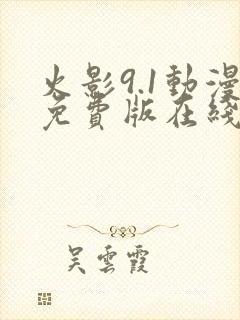 火影9.1動漫
免費版在綫
吴雲霞